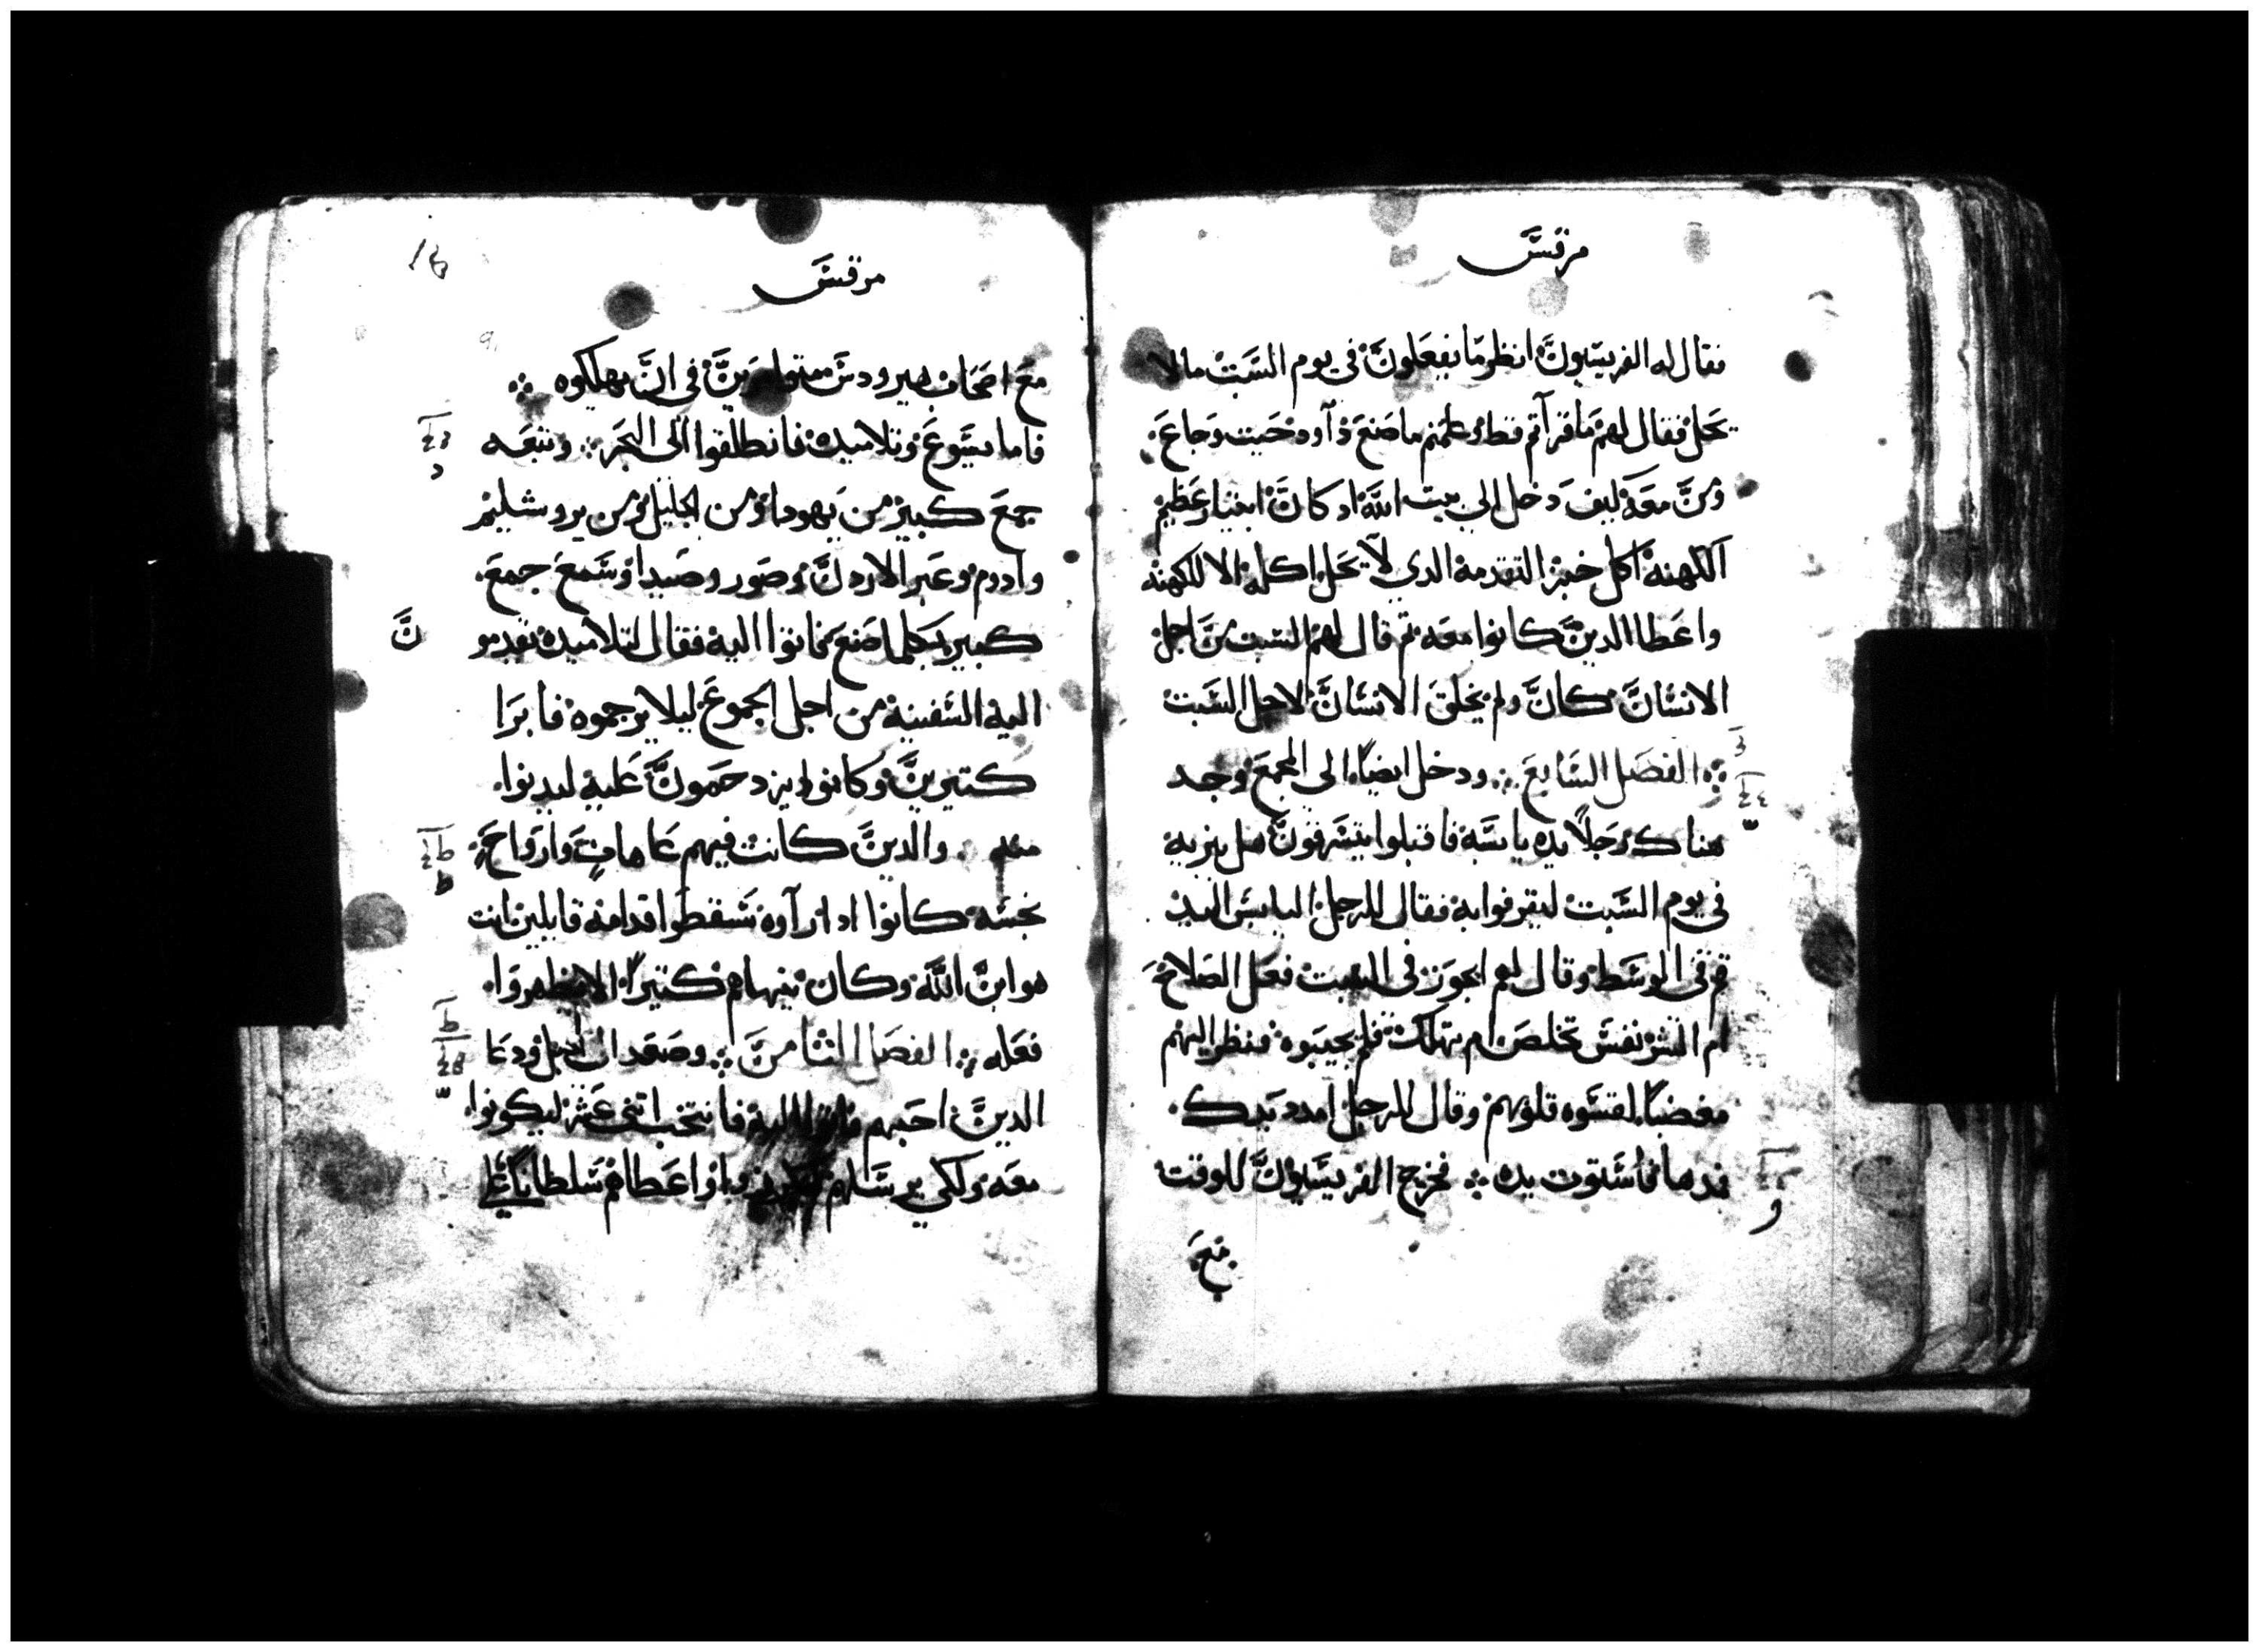 مرقس
فقال له الفريسيون انظر ما يفعلون في يوم السبت ما لا
يحل فقال لهم ما قرآتم قط وعلمتم ما صنع دآوود حيت وجاع
ومن معه كيف دخل الي بيت الله اد كان ابيتار عظيم
الكهنة اكل خبز التقدمة الدي لا يحل اكله الا للكهنة
واعطا الدين كانوا معه تم قال لهم السبت من اجل
الانسان كان ولم يخلق الانسان لاجل السبت
الفصل السابع ودخل ايضاً الى المجمع وجد
هناك رجلاً يده يابسة فاقبلوا يتشرفون هل يبريه
في يوم السبت ليقرفوا به فقال للرجل اليابس اليد
قم في الوسط وقال لهم ايجوز في السبت فعل الصلاح
ام الشر نفس تخلص ام تهلك فلم يجيبوه فنظر اليهم
مغضباً لقسوه قلوبهم وقال للرجل امدد يدك
فمدها فاستوت يده فخرج الفريسيون للوقت
مع
مرقس
مع اصحاب هيرودس في ان يهلكوه
فاما يسوع وتلاميده فانطلقوا الى البحر وتبعه
جمع كبير من يهودا ومن الجليل ومن يروشليم
وادوم وعبر الاردن وصور وصيدا وسمع جمع
كبير بكلما صنع فاتوا اليه فقال لتلاميده تقدمو
اليه السفينة من اجل الجموع ليلا يرجموه فابرا
كتيرين وكانوا يزدحمون عليه ليدنوا
منه والدين كانت فيهم عاهات وارواح
نجسة كانوا ادا رآوه سقطوا قدامه قايلين انت
هو ابن الله وكان ينهاهم كتيراً الا يظهروا
فعله الفصل الثامن وصعد الى الجبل ودعا
الدين احبهم فاتوا اليه فانتخب اتني عشر ليكونوا
معه ولكي يرسلهم واعطاهم سلطاناً على